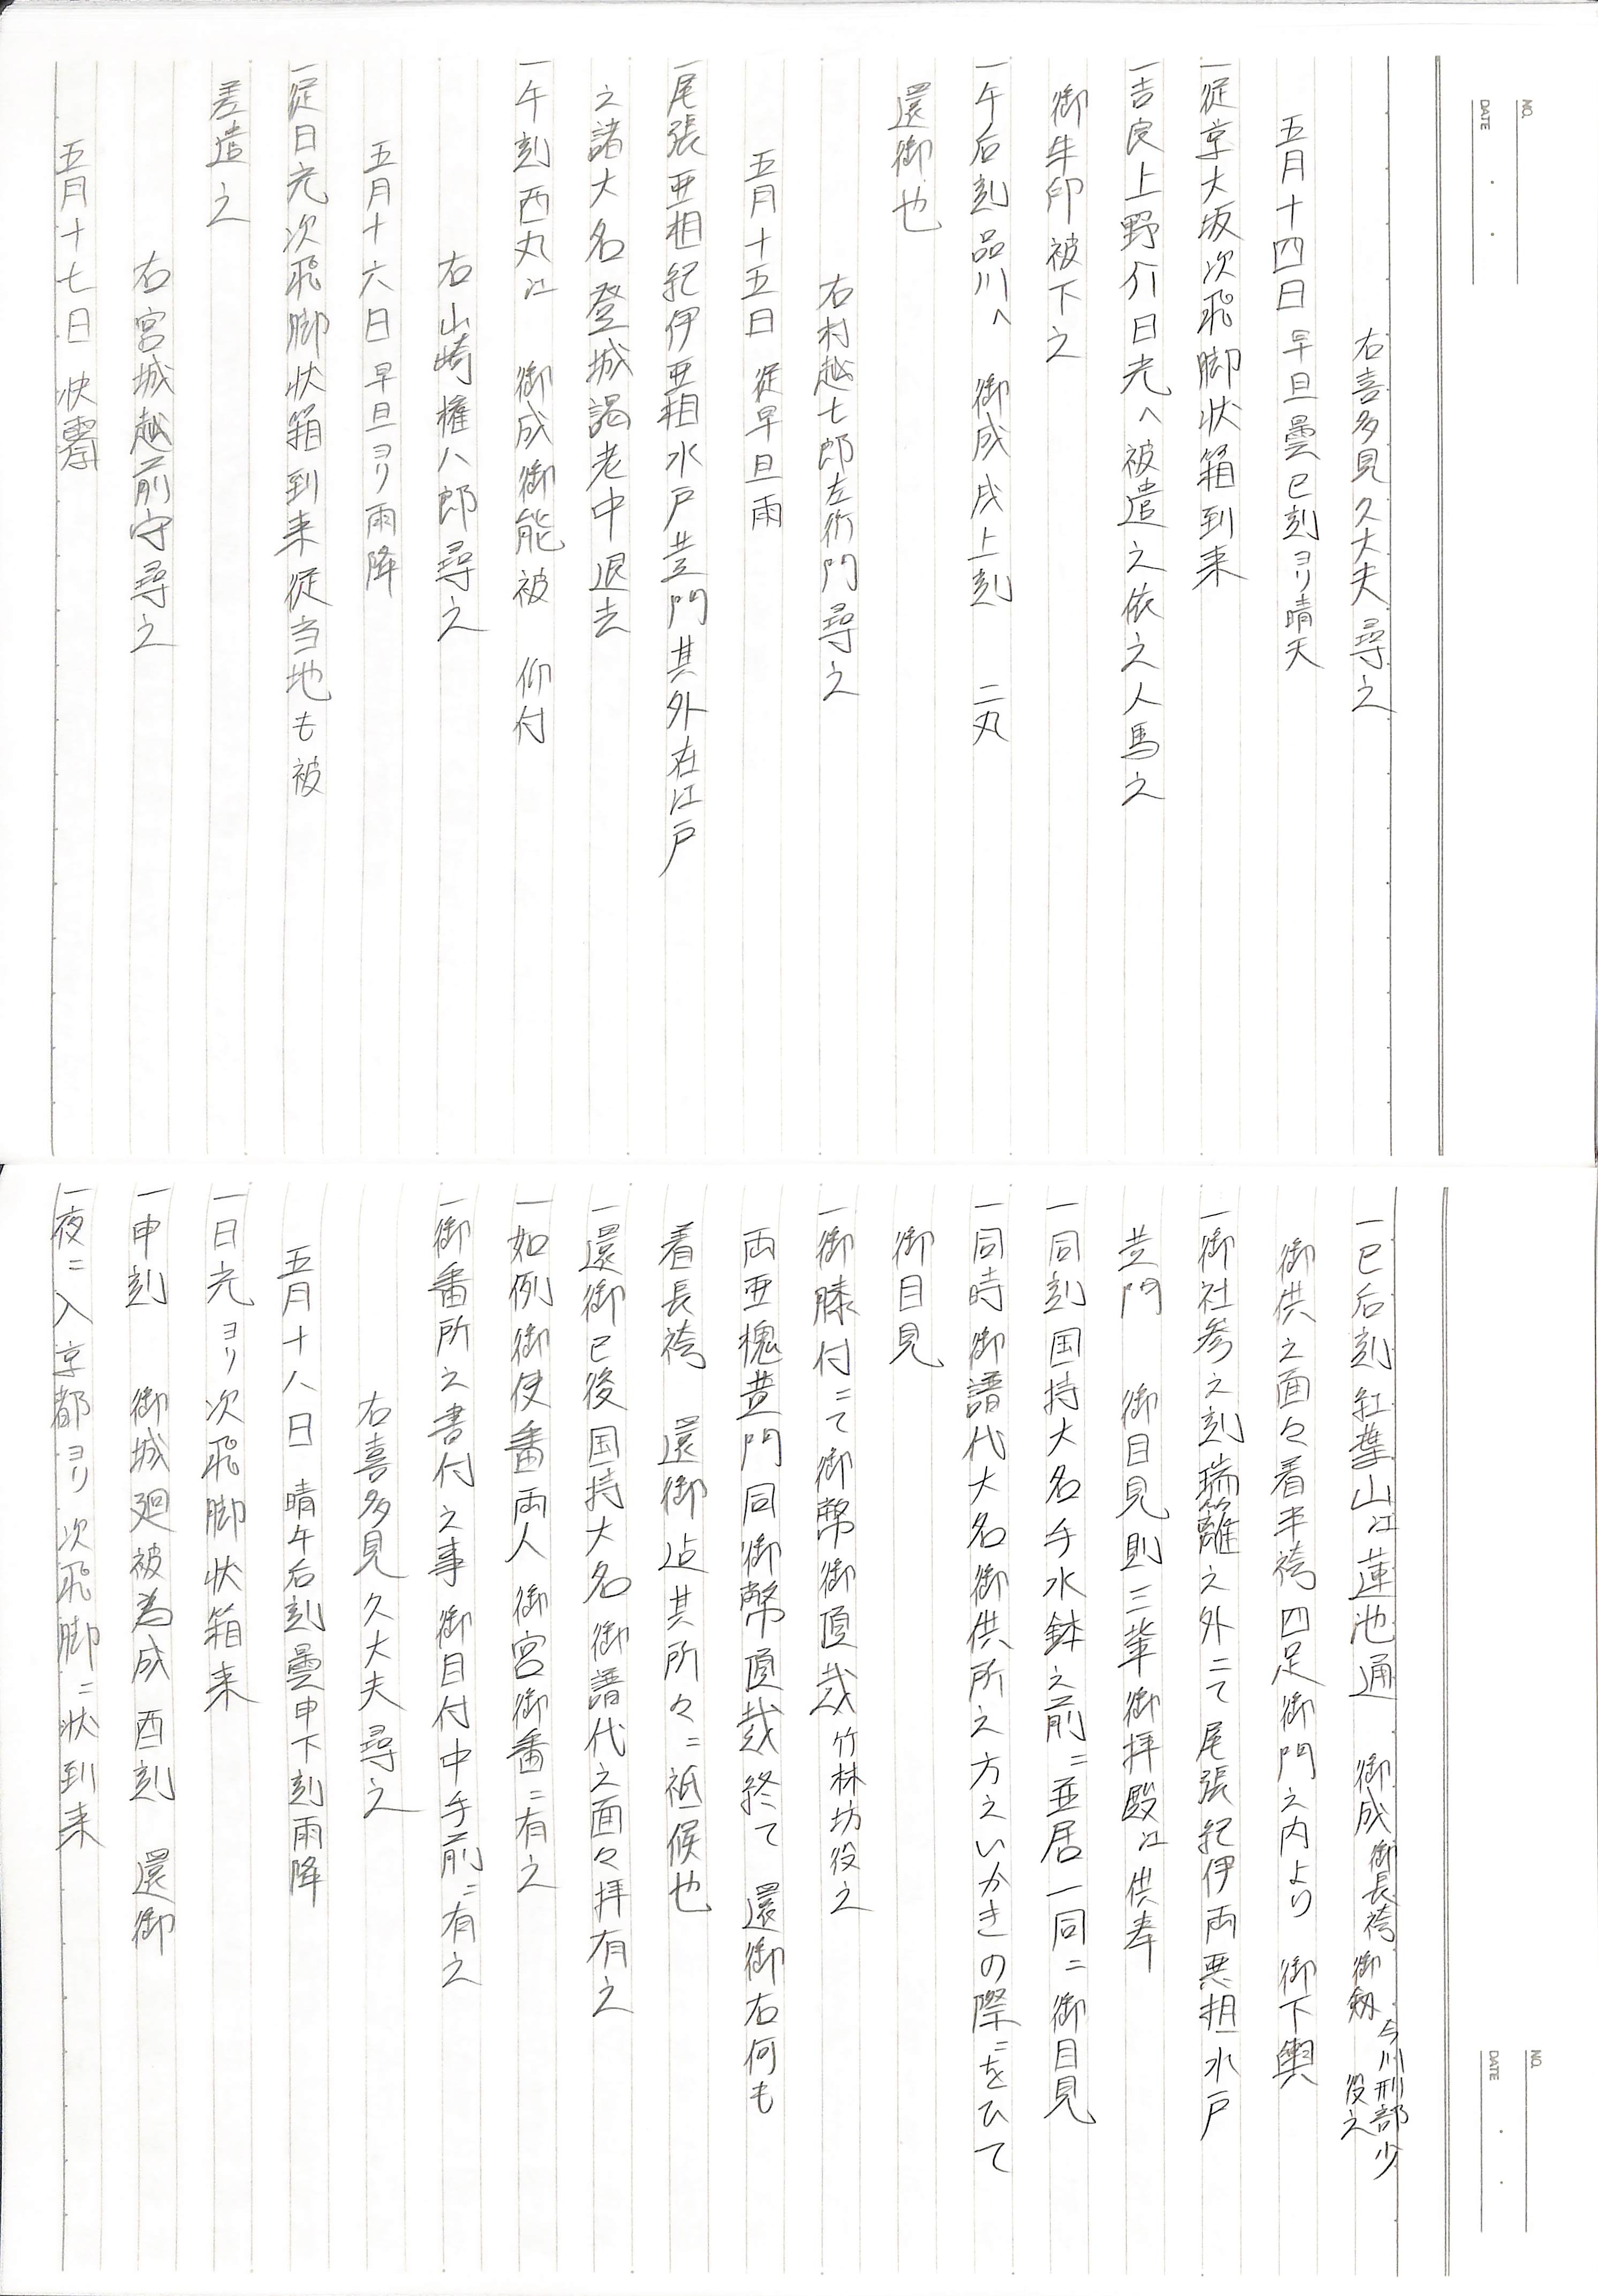 NO.
DATE
右喜多見久大夫尋之
五月十四日 早旦曇巳刻ヨリ晴天
一従京大坂次飛脚状箱到来
一吉良上野介日光へ被遣之依之人馬之
御朱印被下之
一午后刻品川へ 御成戌上刻 二丸
還御也
右村越七郎左衛門尋之
五月十五日 従早旦雨
一尾張亜相紀伊亜相水戸黄門其外在江戸
之諸大名登城謁老中退去
一午刻西丸江 御成御能被 仰付
右山崎権八郎尋之
五月十六日 早旦ヨリ雨降
一従日光次飛脚状箱到来従当地も被
差遣之
右宮城越前守尋之
五月十七日 快霽
NO.
DATE
一巳后刻紅葉山江蓮池通 御成 御長袴 御剱 今川刑部少役之
御供之面々着半袴四足御門之内より 御下輿
一御社参之刻瑞籬之外ニて尾張紀伊両亜相水戸
黄門 御目見則三輩御拝殿江供奉
一同刻国持大名手水鉢之前ニ並居一同ニ御目見
一同時御譜代大名御供所之方之いかきの際ニをひて
御目見
一御膝付ニて御幣御頂戴 竹林坊役之
両亜槐黄門同御幣頂戴終て 還御右何も
着長袴 還御迠其所々ニ祗候也
一還御已後国持大名御譜代之面々拝有之
一如例御使番両人御宮御番ニ有之
一御番所之書付之事御目付中手前ニ有之
右喜多見久大夫尋之
五月十八日 晴午后刻曇申下刻雨降
一日光ヨリ次飛脚状箱来
一申刻 御城廻被為成酉刻 還御
一夜ニ入京都ヨリ次飛脚ニ状到来